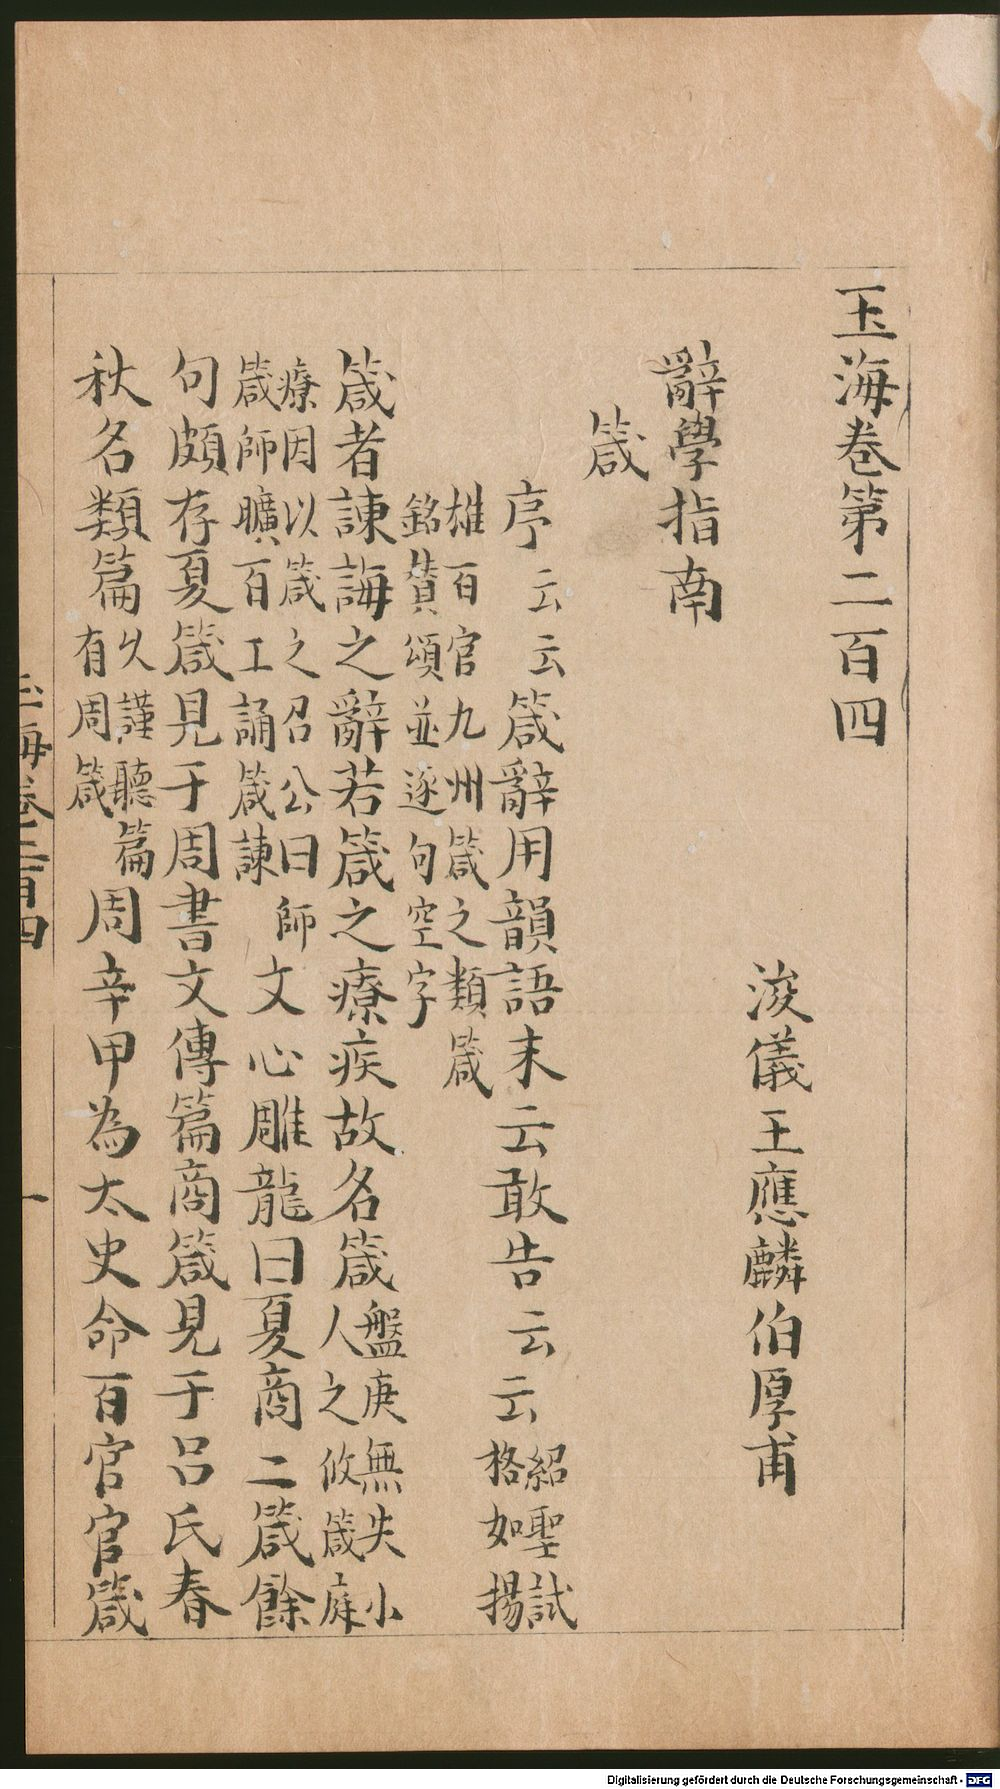 玉海卷第二百四
浚儀王應麟伯厚甫
辭學指南
箴
序云云箴辭用韻語末云敢告云云紹聖試格如揚
雄百官九州箴之類箴銘賛頌並逐句空字
箴者諫誨之辭若箴之療疾故名箴盤庚無失小人之攸箴庭
療因以箴之召公曰師箴師曠百工誦箴諫文心雕龍曰夏商二箴餘
句頗存夏箴見于周書文傳篇商箴見于呂氏春
秋名類篇乆謹聽篇有周箴周辛甲為太史命百官官箴
玉海卷二百四
一
Digitalisierung gefördert durch die Deutsche Forschungsgemeinschaft - DFG